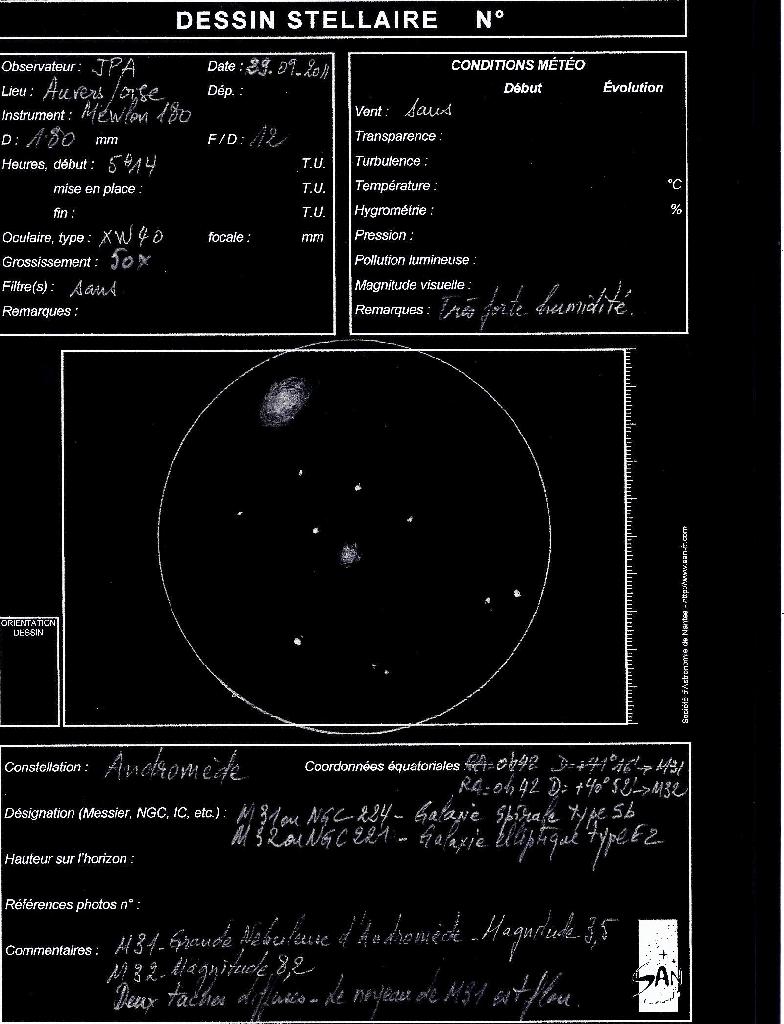 DESSIN STELLAIRE N°
Observateur : JPA Date : 29.09.2011
Lieu : Auvers/oise Dép. :
Instrument : Mewlon 180
D : 180 mm F / D : 12
Heures, début : 5h14 T.U.
mise en place : T.U.
fin : T.U.
Oculaire, type : XW40 focale : mm
Grossissement : 50x
Filtre(s) : sans
Remarques :
CONDITIONS MÉTÉO
Début Évolution
Vent : sans
Transparence :
Turbulence :
Température : °C
Hygrométrie : %
Pression :
Pollution lumineuse :
Magnitude visuelle :
Remarques : Très forte humidité.
ORIENTATION
DESSIN
Société d'Astronomie de Nantes - http://www.san-fr.com
Constellation : Andromède Coordonnées équatoriales RA=0h42 D=+41°16'→M31
RA=0h42 D=+40°52'→M32
Désignation (Messier, NGC, IC, etc.) : M31 ou NGC-224 - Galaxie Spirale type Sb
M32 ou NGC221 - Galaxie elliptique type E2
Hauteur sur l'horizon :
Références photos n° :
Commentaires : M31 - Grande Nébuleuse d'Andromède - Magnitude 3,5
M32 - Magnitude 8,2
Deux taches diffuses - Le noyeau de M31 est flou.
SAN